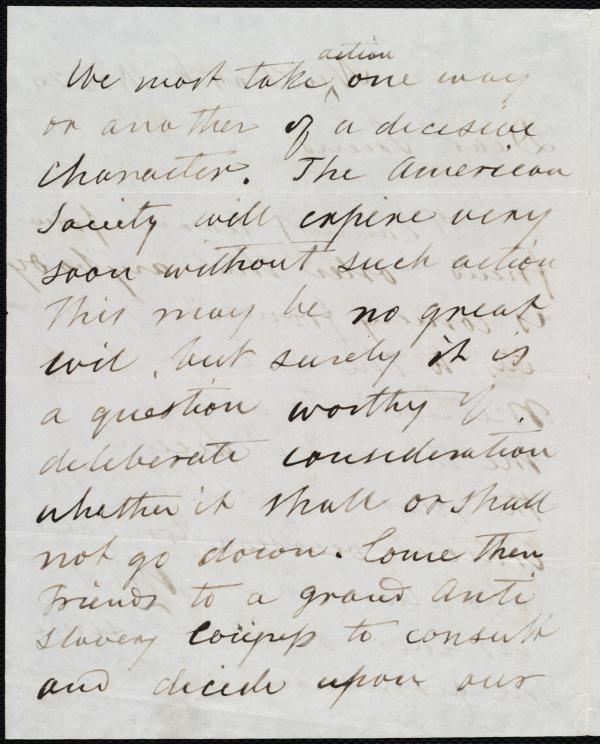 action
We most take ^ one way
or another of a decisive
character. The American
Society will expire very
soon without such action
This may be no great
evil, but surely it is
a question worthy of
deliberate consideration
whether it shall or shall
not go down. Come then
Friends to a grand Anti
Slavery to consult
and decide upon our